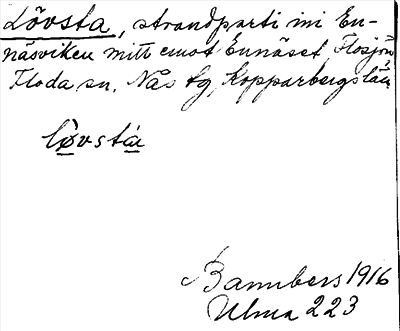 Lövsta, strandparti ini En-
näsviken mitt emot Ennäset, Flosjön
Floda sn, Nås tg, Kopparbergs län
lò̲vstá̲
Bannbers 1916
Ulma 223